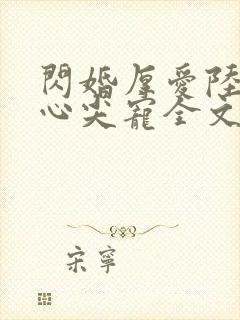 閃婚厚愛陸
心尖寵全文
宋寧